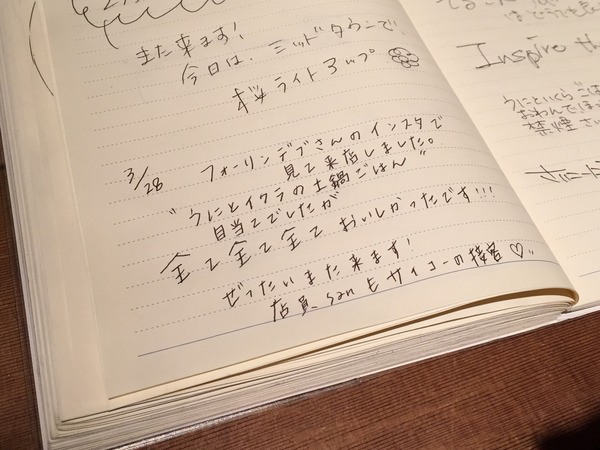 また来ます!
今日は、ミッドタウンで、
桜ライトアップ
3/28 フォーリンデブさんのインスタで
見て来店しました。
"うにとイクラの土鍋ごはん"
目当てでしたが
全て全て全て おいしかったです!!!
ぜったいまた来ます!
店員sanもサイコーの接客♡
Inspire th
うにといくらごは
おわんでほ
禁煙